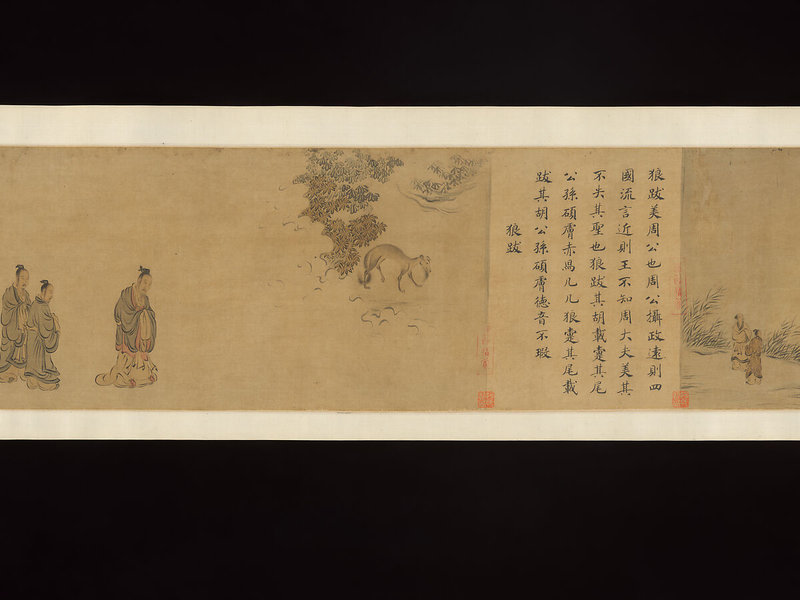 狼跋美周公也周公攝政遠則四
國流言近則王不知周大夫美其
不失其聖也狼跋其胡載疐其尾
公孫碩膚赤舄几几狼疐其尾載
跋其胡公孫碩膚德音不瑕
狼跋